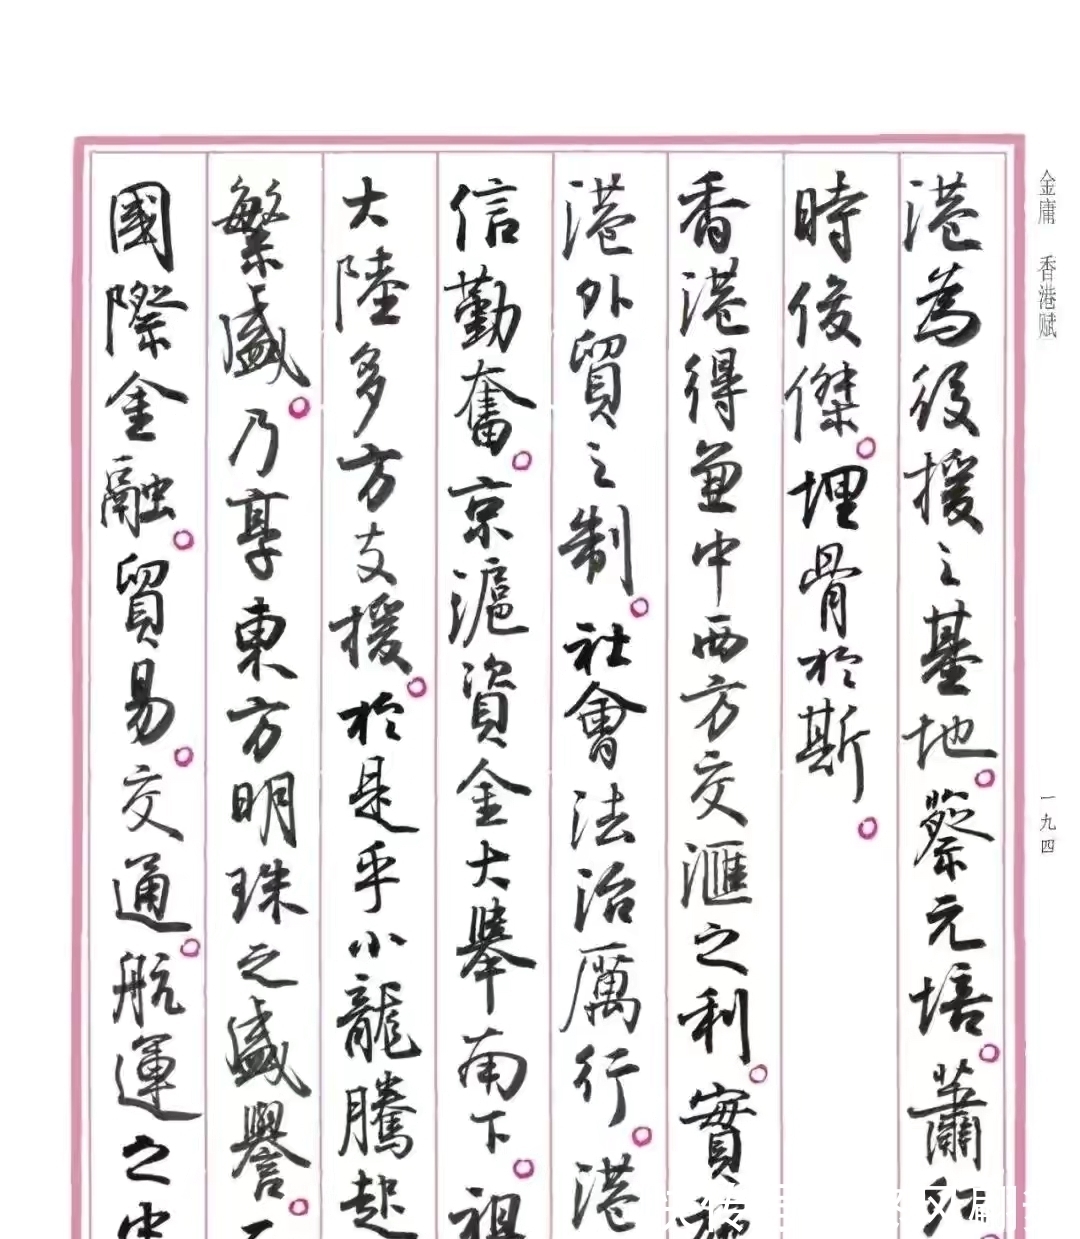 金庸 香港赋
一九四
港為後援之基地。蔡元培。蕭紅
時俊傑。埋骨於斯。
香港得兼中西方交滙之利。實
港外貿之制。社會法治厲行。港
信勤奮。京滬資金大舉南下。祖
大陸多方支援。於是乎小龍騰起
繁盛。乃享東方明珠之盛譽。
國際金融。貿易。交通。航運之中